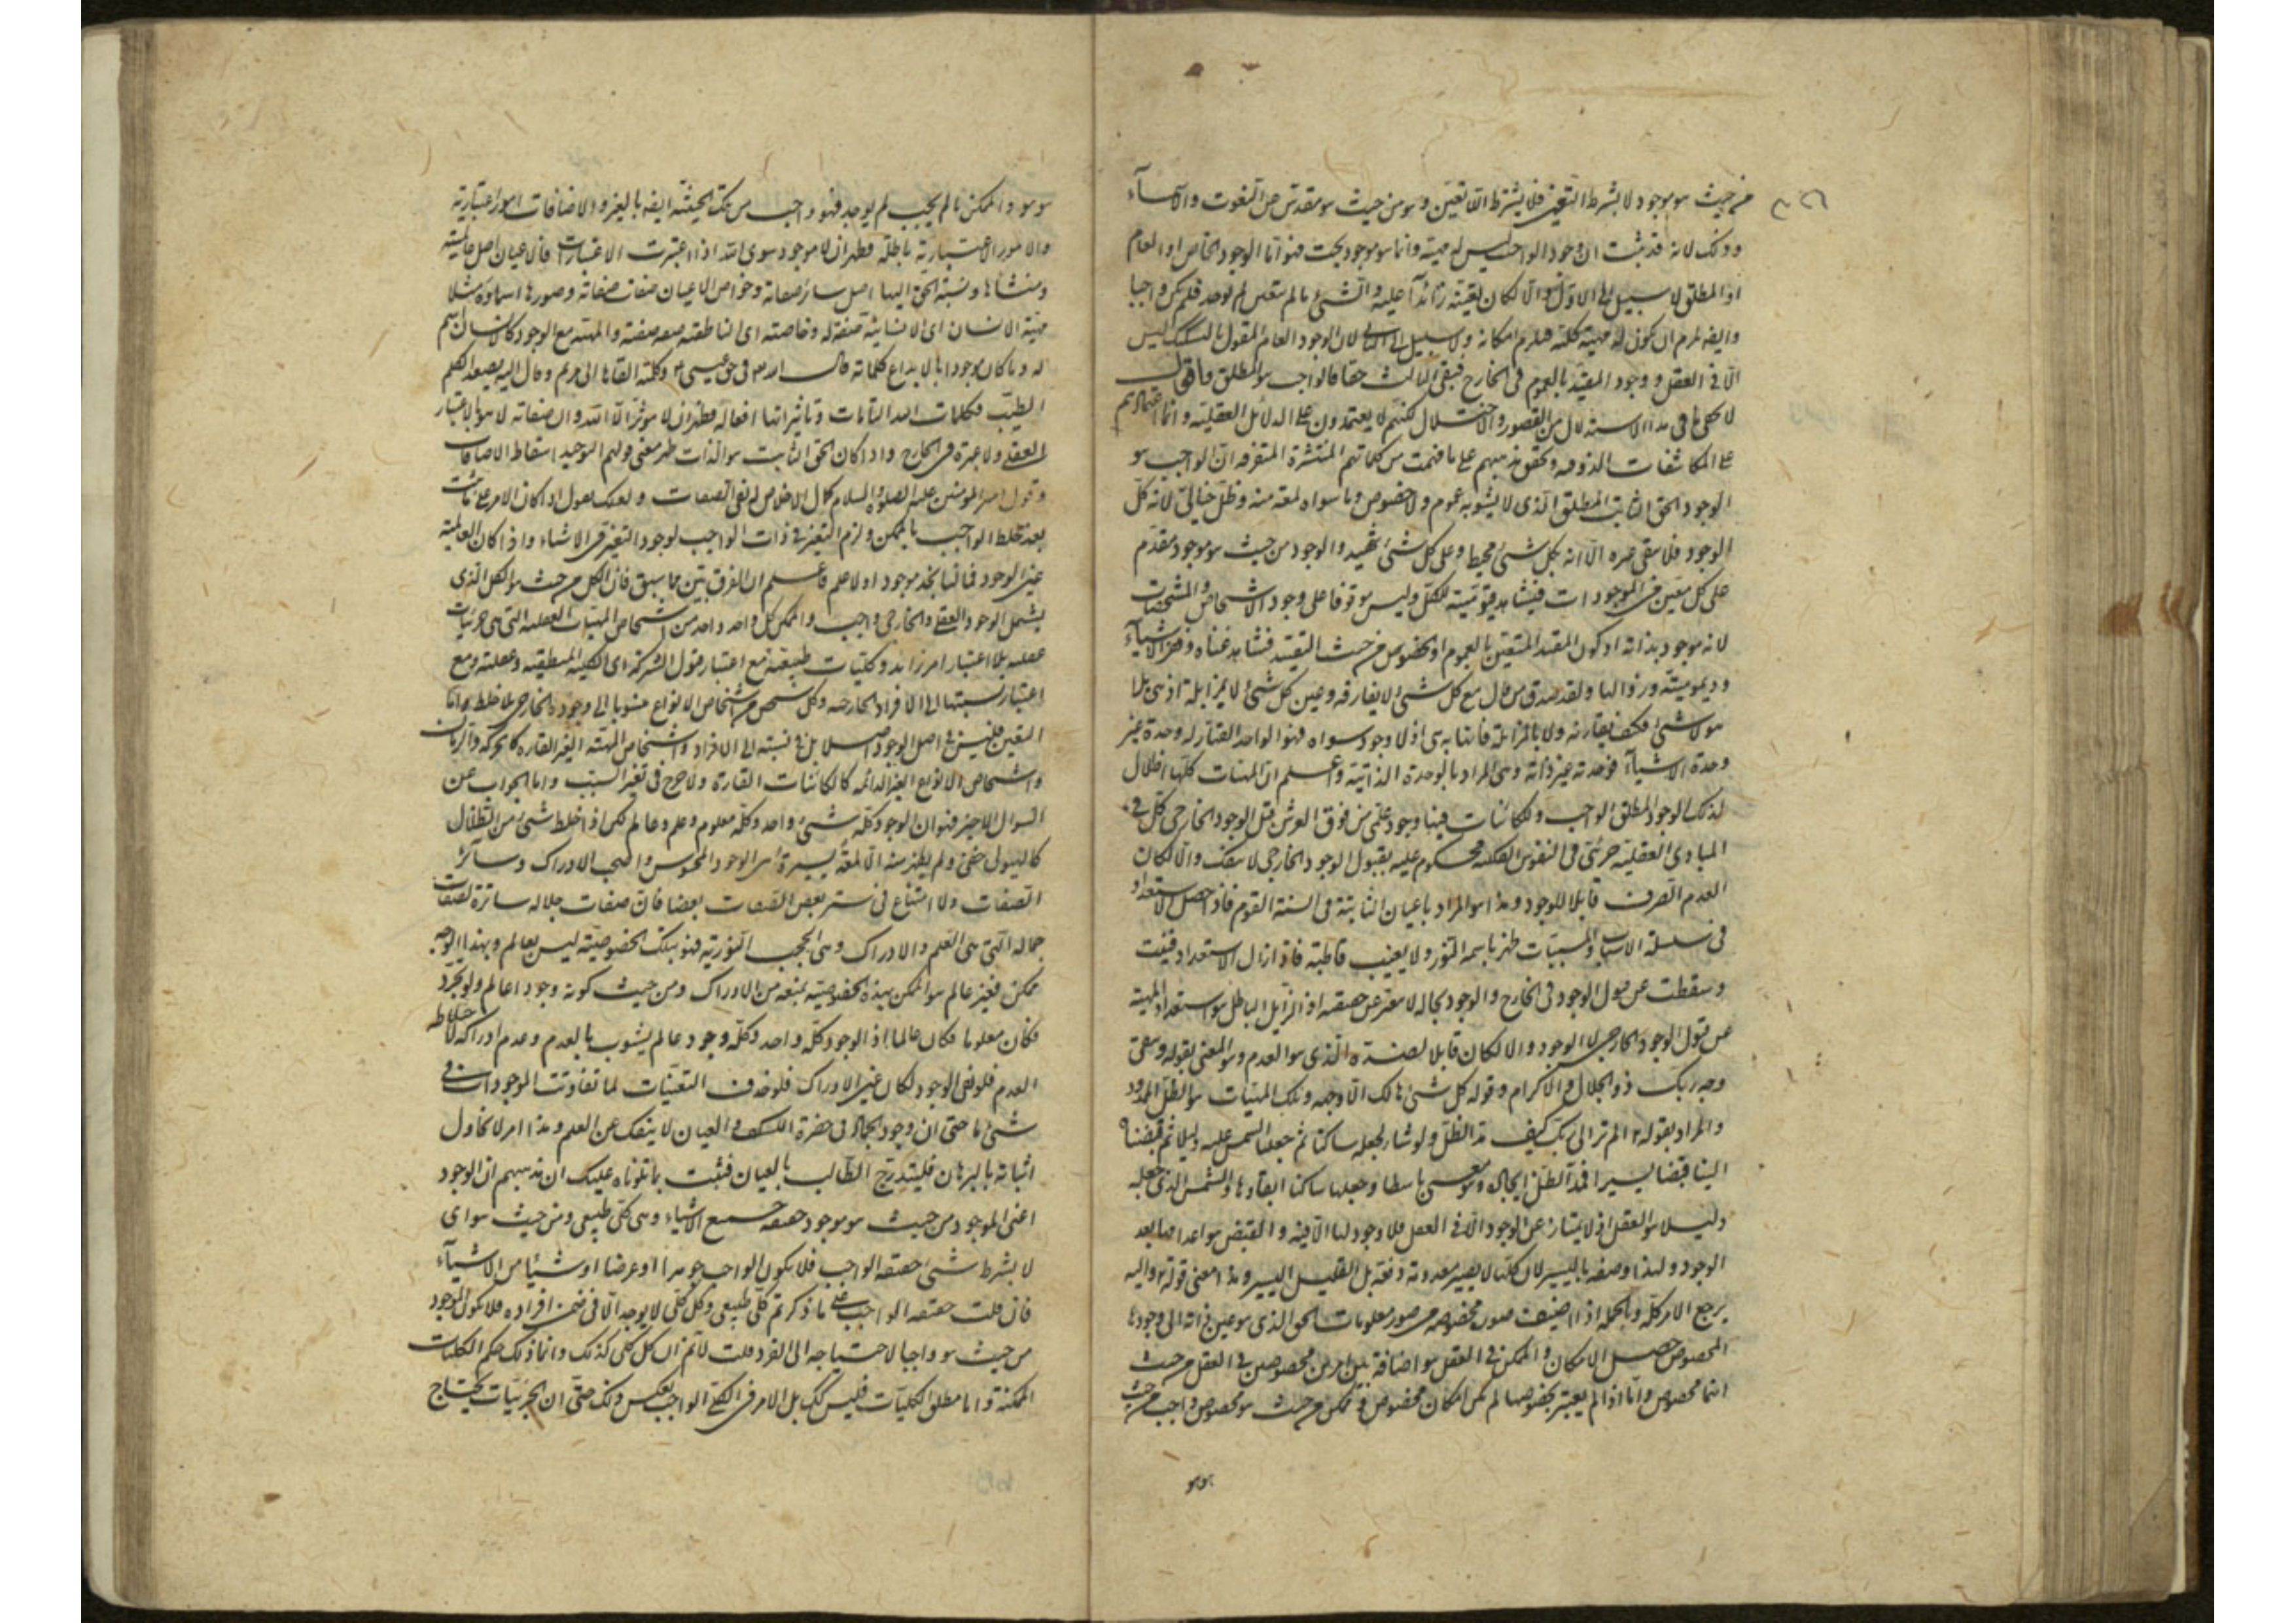 من حيث هو موجود لا بشرط التعين فلا يشترط اللاتعين وهو من حيث هو مقدس عن النعوت والاسمآء
وذلك لانه قد ثبت ان وجود الواجب ليس له مهية وانما هو موجود بحت فهو اما الوجود الخاص او العام
او المطلق لا سبيل الى الاول والّا لكان تعينه زائدا عليه والشئ ما لم يتعين لم يوجد فلم يكن واجبا
وايضا لزم ان يكون له مهية كلية فيلزم امكانه ولا سبيل الى الثانى لان الوجود العام المقول بالتشكيك ليس
الّا فى العقل ووجود المقيد بالعموم فى الخارج فبقى الثالث حقا فالواجب هو المطلق
لا يخفى ما فى هذا الاستدلال من القصور والاختلال لكنهم لا يعتمدون على الدلائل العقلية وانما اعتمادهم
على المكاشفات الذوقية وتحقق مذهبهم على ما فهمت من كلماتهم المنتشرة المتفرقة ان الواجب هو
الوجود الحق الثابت المطلق الذى لا يشوبه عموم ولا خصوص وما سواه لمعة منه وظل خيالى لانه كل
الوجود فلا يبقى غيره الّا انه بكل شئ محيط وعلى كل شئ شهيد والوجود من حيث هو موجود مقدم
على كل متعين من الموجودات فيشاهد قيوميته للكل وليس موقوفا على وجود الاشخاص والمشخصات
لانه موجود بذاته اذ كون المقيد المتعين بالعموم او الخصوص من حيث التقييد فيشاهد غناه وفقر الاشيآء
وديموميته وزوالها ولقد صدق من قال مع كل شئ لا يفارقه وعين كل شئ لا يزايله اذ هى بلا
هو لا شئ فكيف يقارنه ولا بالمزايلة فانها به هى اذ لا وجود سواه فهو الواحد القهار له وحدة غير
وحدة الاشيآء فوحدته عين ذاته وهى المراد بالوحدة الذاتية واعلم ان المهيات كلها اظلال
لذلك الوجود المطلق الواجب وللكائنات فيها وجود علمى من فوق العرش قبل الوجود الخارجى كلى فى
المبادى العقلية جزئى فى النفوس الفلكية محكوم عليه بقبول الوجود الخارجى لا ينفك والّا لكان
العدم الصرف قابلا للوجود وهذا هو المراد باعيان الثابتة فى السنة القوم فاذا حصل الاستعداد
فى سلسلة الاسباب والمسببات ظهر باسمه النور ولا يغيب قاطبة فاذا زال الاستعداد فنيت
وسقطت عن قبول الوجود فى الخارج والوجود بحاله لا يتغير عن حقيقته اذ الزايل الباطل هو استعداد المهية
عن قبول الوجود الخارجى لا الوجود والا لكان قابلا لضده الذى هو العدم وهو المعنى بقوله ويبقى
وجه ربك ذو الجلال والاكرام وقوله كل شئ هالك الّا وجهه وتلك المهيات هو الظل الممدود
والمراد بقوله الم تر الى ربك كيف مد الظل ولو شاء لجعله ساكنا ثم جعلنا الشمس عليه دليلا ثم قبضناه
الينا قبضا يسيرا فمد الظل ايجاده وجعلها ساكنا ابقاؤها والشمس الذى جعله
دليلا هو العقل اذ لا يمتاز عن الوجود الّا فى العقل فلا وجود لها الّا فيه والقبض هو اعدامها بعد
الوجود ولهذا وصفه باليسير لان كلها لا يصير معدومة دفعة بل القليل اليسير وهذا معنى قوله واليه
يرجع الامر كله وبالجملة اذا اضيفت صورة مخصوصة من صور معلومات الحق الذى هو عين ذاته الى وجودها
المخصوص حصل الامكان والممكن فى العقل هو اضافة بين امرين مخصوصين فى العقل من حيث
انها مخصوص واما اذا لم يعتبر بخصوصها لم يكن امكان مخصوص فهو ممكن من حيث هو مخصوص واجب من حيث
هو هو
هو هو والممكن ما لم يجب لم يوجد فهو واجب من تلك الحيثية ايضا بالغير والاضافات امور اعتبارية
والامور الاعتبارية باطلة فظهر ان لا موجود سوى الله اذا اعتبرت الاعتبارات فالاعيان اصل عالميته
ومنشأها ونسبة الحق اليها اصل سائر صفاته وخواص الاعيان صفات صفاته وصورها اسماؤه مثلا
مهية الانسان اى الانسانية صفة له وخاصته اى الناطقية صفة صفته والمهية مع الوجود كالانسان اسم
له وما كان موجودا بالابداع كلماته قال الله فى حق عيسى وكلمته القاها الى مريم وقال اليه يصعد الكلم
الطيب فكلمات الله التامات وتاثيراتها افعاله فظهر ان لا مؤثر الّا الله وان صفاته لا هو بالاعتبار
العقلى ولا غيره فى الخارج واذا كان الحق الثابت هو الذات ظهر معنى قولهم التوحيد اسقاط الاضافات
وقول امير المؤمنين عليه الصلوة والسلام كمال الاخلاص له نفى الصفات ولعلك تقول اذا كان الامر على ما بينت
بعد خلط الواجب بالممكن ولزم التغير فى ذات الواجب لوجود التغير فى الاشياء واذا كان العالمية
عين الوجود فما لنا نجد موجودا ولا علم فاعلم ان الفرق بين مما سبق فان الكل من حيث هو الكل الذى
يشمل الوجود العقلى والخارجى واجب والممكن كل واحد واحد من اشخاص المهيات العقلية التى هى جزئيات
عقلية بلا اعتبار امر زائد وكليات طبيعية مع اعتبار قبول الشركة اى الكلية المنطقية وعقلية ومع
اعتبار نسبتها الى الافراد الخارجية وكل شخص من اشخاص الانواع منسوبا الى وجوده الخارجى فلا خلط واما
التغير فليس فى اصل الوجود اصلا بل فى نسبته الى الافراد واشخاص المهية الغير القارة كالحركة والزمان
واشخاص الانواع الغير الدائمة كالكائنات القارة ولا حرج فى تغير النسب واما الجواب عن
السوال الاخير فهو ان الوجود كله شئ واحد وكله معلوم وعلم وعالم لكن اذا خلط شئ من الظلال
كالهيولى خفى ولم يظهر منه الّا لمعة يسيرة اى الوجود المحسوس واحتجب الادراك وسائر
الصفات ولا امتناع فى ستر بعض الصفات بعضا فان صفات جلاله ساترة لصفات
جماله التى هى العلم والادراك وهى الحجب النورية فهو بتلك الخصوصية ليس بعالم وبهذا الوجه
ممكن فغير عالم هو الممكن بهذه الخصوصية يمنعه من الادراك ومن حيث كونه وجودا عالم ولو جرد
فكان معلوما فكان عالما اذ الوجود كله واحد وكله وجود عالم يشوب بالعدم وعدم ادراكه لاختلاطه
العدم فلو نفى الوجود لكان غير الادراك فلو حذف التعينات لما تفاوتت الموجودات فى
شئ ما حتى ان وجود الجماد فى حضرة الكشف والعيان لا ينفك عن العلم وهذا امر لا نحاول
اثباته بالبرهان فليتدرج الطالب بالعيان فثبت بما تلوناه عليك ان مذهبهم ان الوجود
اعنى الموجود من حيث هو موجود حقيقة جميع الاشياء وهى كلى طبيعى ومن حيث هو اى
لا بشرط شئ حقيقة الواجب فلا يكون الواجب جوهرا او عرضا او شيئا من الاشيآء
فان قلت حقيقة الواجب على ما ذكرتم كلى طبيعى وكل كلى لا يوجد الّا فى ضمن افراده فلا يكون الموجود
من حيث هو واجبا لاحتياجه الى الفرد قلت لا نم ان كل كلى كذلك وانما ذلك حكم الكليات
الممكنة واما مطلق الكليات فليس كك بل الامر فى الكلى الواجب بعكس ذلك حتى ان الجزئيات يحتاج